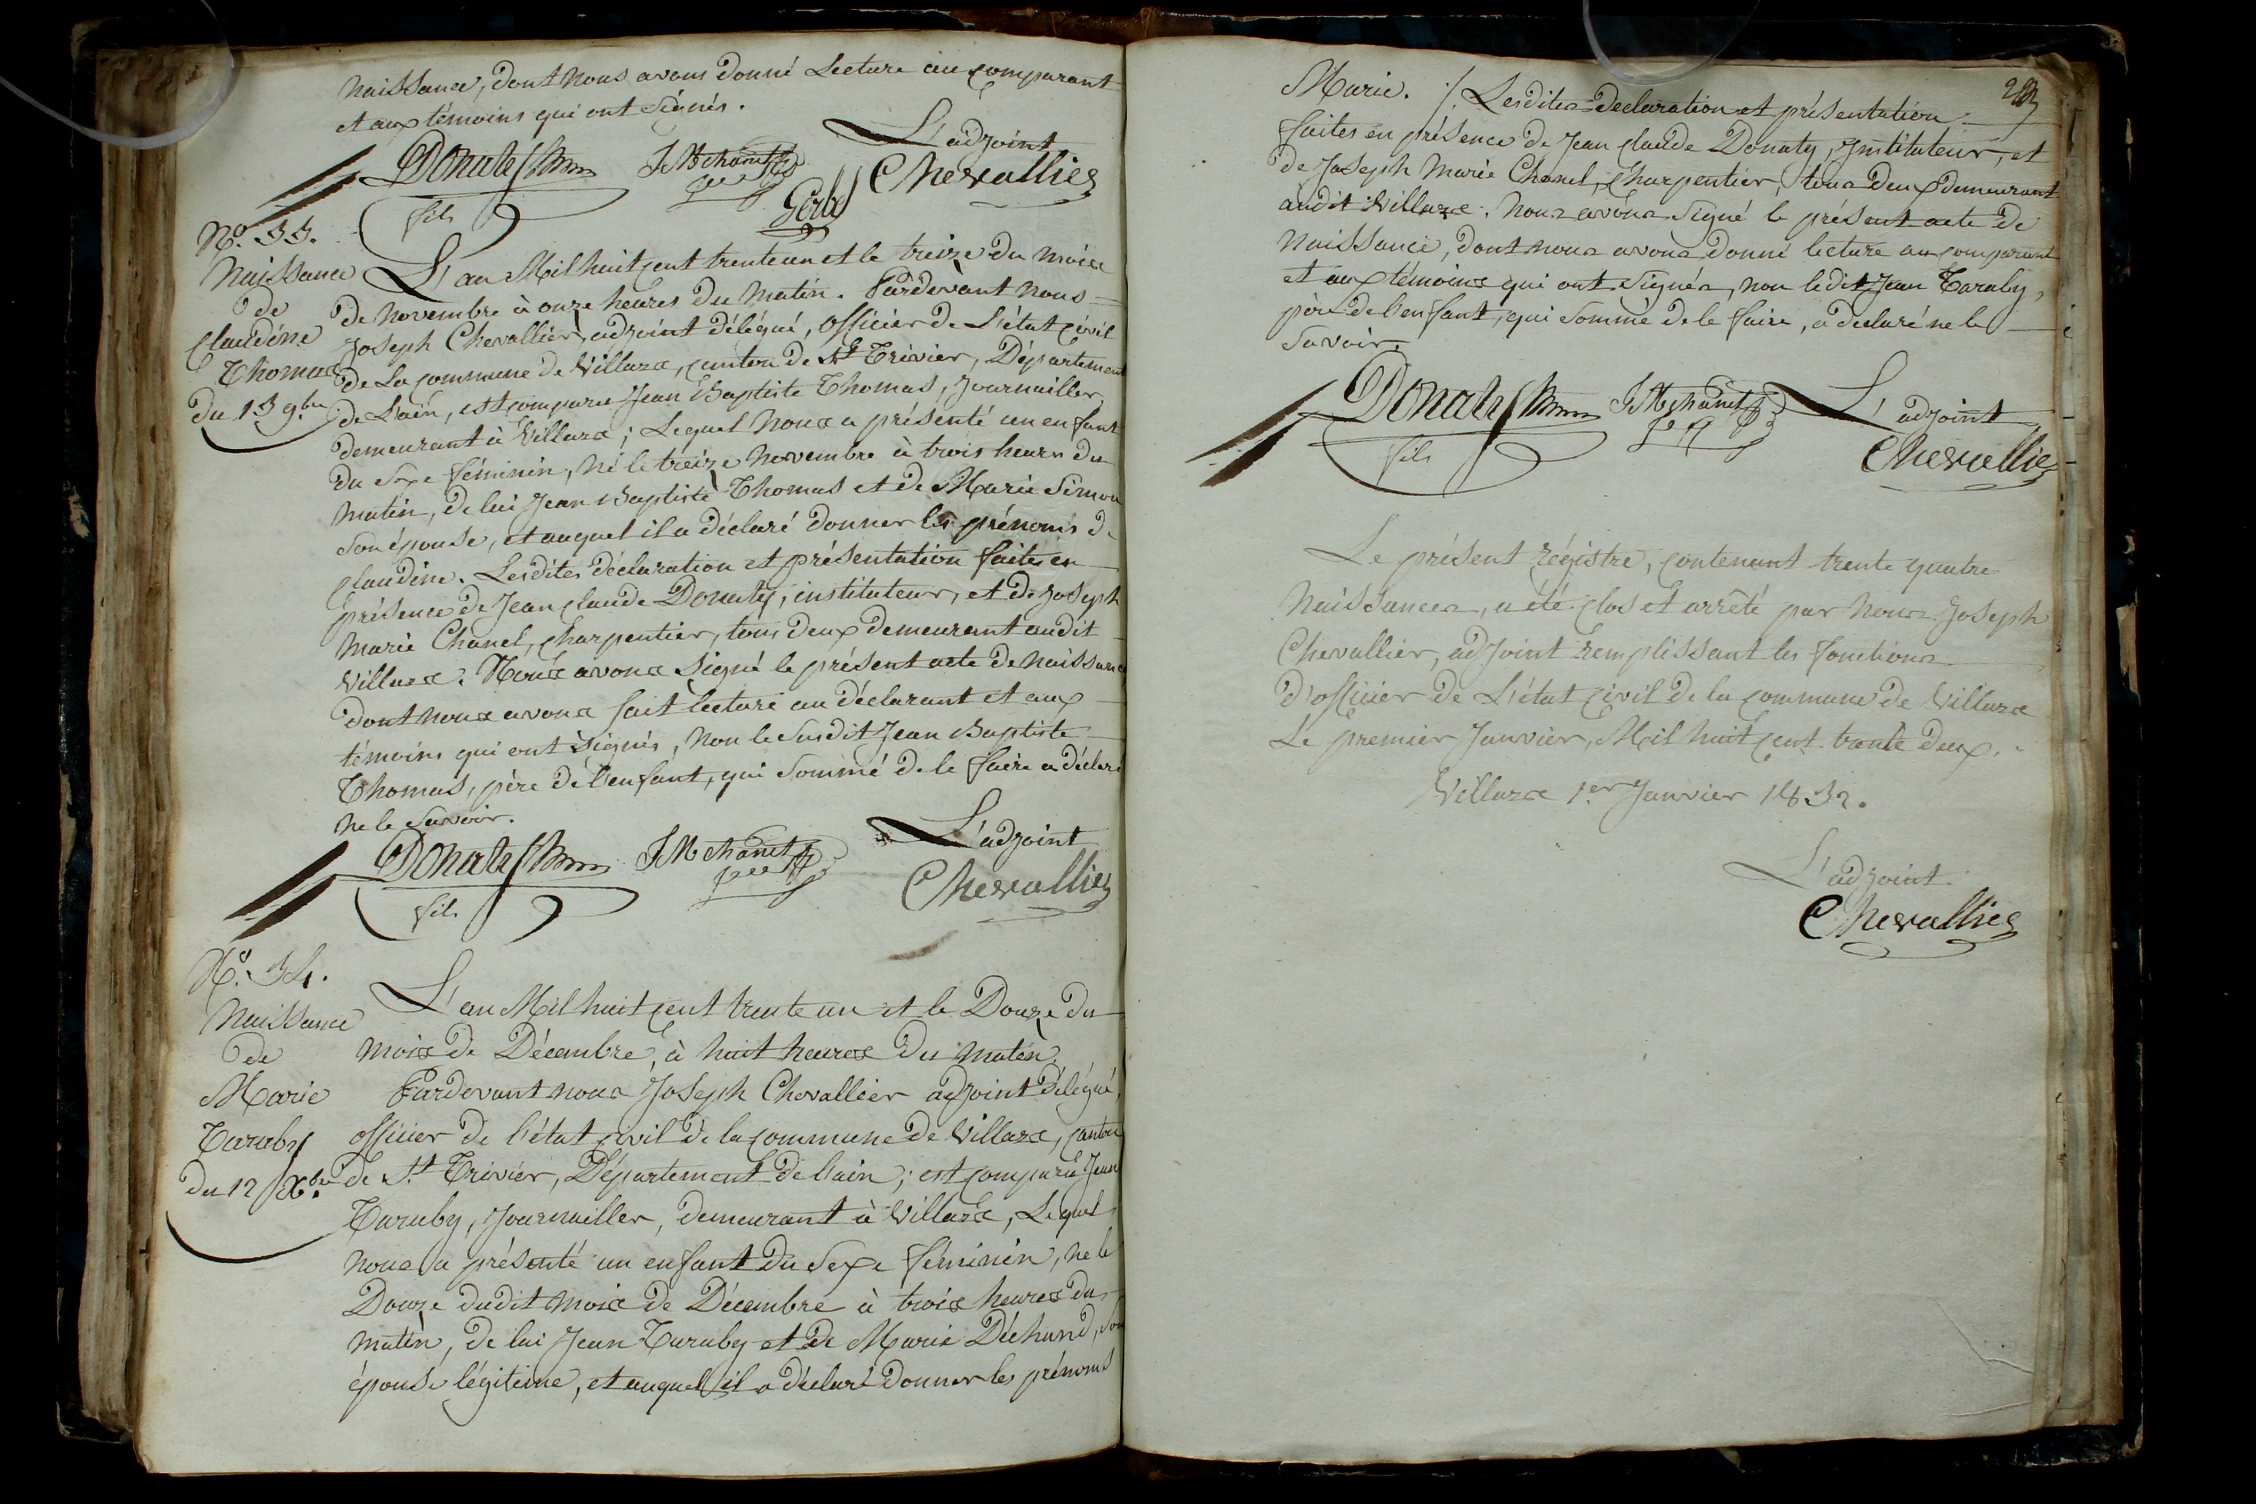 Naissance, dont nous avons donné Lecture au comparant
et aux témoins qui ont Signés.
L'adjoint
Donaty fils
J M chanel
Gerbe
Chevallier
No. 33.
Naissance
de
Claudine
Thomas
du 13 9.bre
L'an Mil huit cent trente un et le treize du mois
de Novembre à onze heures du Matin. Pardevant Nous
Joseph Chevallier, adjoint délégué, Officier de L'état Civil
de La commune de Villars, canton de St Trivier, Département
de L'ain, est comparu Jean Baptiste Thomas, Journailler,
demeurant à Villars; Lequel Nous a présenté un enfant
du Sexe féminin, Né le treize Novembre à trois heures du
Matin, de lui Jean Baptiste Thomas et de Marie Simon
Son épouse, et auquel il a déclaré donner les prénoms de
Claudine. Lesdites déclaration et présentation faites en
présence de Jean Claude Donaty, instituteur, et de Joseph
Marie Chanel, Charpentier, tous deux demeurant audit
Villars. Nous avons Signé le présent acte de Naissance
dont nous avons fait lecture au déclarant et aux
témoins qui ont Signés, Non le Susdit Jean Baptiste
Thomas, père de l'enfant, qui Sommé de le faire a déclaré
Ne le Savoir.
Donaty fils
J M chanel
L'adjoint
Chevallier
No. 34.
Naissance
de
Marie
Taraby
du 12 Xbre
L'an Mil huit cent trente un et le Douze du
mois de Décembre, à huit heures du matin.
Pardevant nous Joseph Chevallier adjoint délégué,
officier de l'état civil de la commune de Villars, canton
de St Trivier, Département de l'ain; est comparu Jean
Taraby, Journailler, demeurant à Villars, Lequel
nous a présenté un enfant du Sexe féminin, né le
Douze dudit mois de Décembre à trois heures du
matin, de lui Jean Taraby et de Marie Déchand, Son
épouse légitime, et auquel il a déclaré donner les prénoms
Marie. ·/. Lesdites déclaration et présentation
faites en présence de Jean Claude Donaty, Instituteur, et
de Joseph Marie Chanel, Charpentier, tous deux demeurant
audit Villars. Nous avons Signé le présent acte de
Naissance, dont nous avons donné lecture au comparant
et aux témoins qui ont Signés, non ledit Jean Taraby,
père de l'enfant, qui Sommé de le faire, a déclaré ne le
Savoir.
Donaty fils
J M chanel
L'adjoint
Chevallier
Le présent régistre, contenant trente quatre
Naissances, a été clos et arrêté par Nous Joseph
Chevallier, adjoint remplissant les fonctions
d'officier de L'état civil de la commune de Villars
Le premier Janvier, Mil huit cent trente deux.
Villars 1er Janvier 1832.
L'adjoint
Chevallier